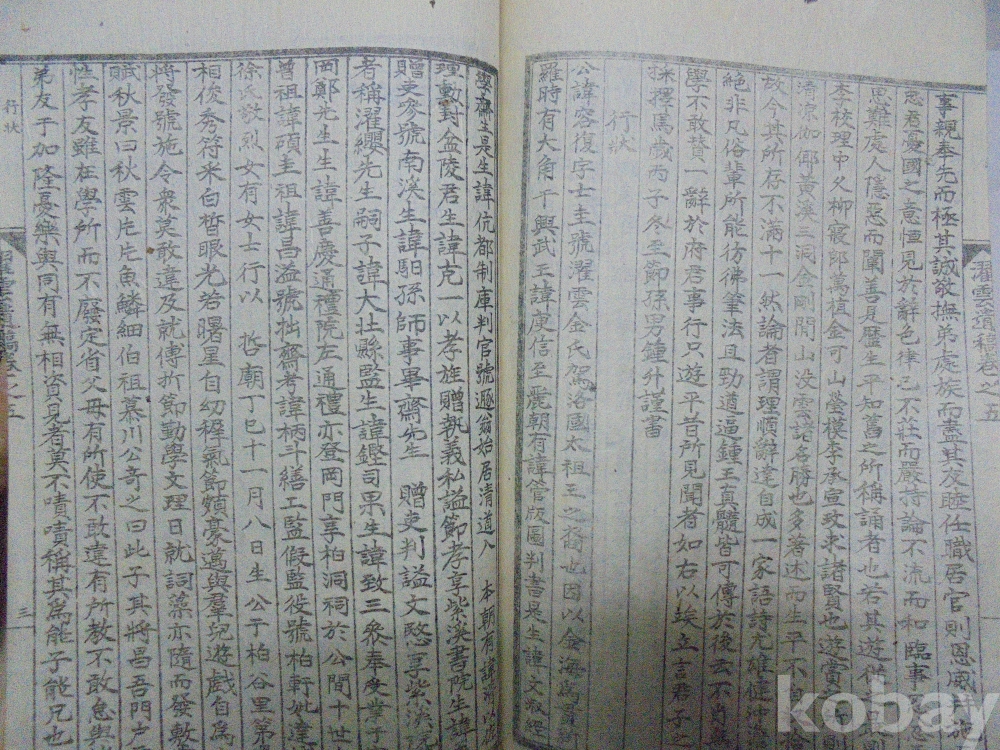 事親奉先而極其誠敬撫弟處族而盡其友睦任職居官則恩威幷施
忠君憂國之意恒見於辭色律己不莊而嚴持論不流而和臨事
思難處人隱惡而闡善夏歷生平知舊之所稱誦者也若其遊從
李校理中久柳寢郎萬植金可山瑩模李承宣致求諸賢也遊賞
淸凉伽倻黃溪三洞金剛開山沒雲諸名勝也多著述而生平不自
故今其所存不滿十一然論者謂理順辭達自成一家語詩尤雄健冲
絶非凡俗輩所能彷彿筆法且勁遒逼鍾王眞髓皆可傳於後玄不肖
學不敢贊一辭於府君事行只遊平昔所見聞者如右以竢立言君子之
採擇焉歲丙子冬至節孫男鍾升謹書
行狀
公諱容復字士圭號濯雲金氏駕洛國太祖王之裔也因以金海爲貫新
羅時有大角干興武王諱庾信至麗朝有諱管版圖判書是生諱文淑經
濯雲遺稿卷之五
學齋生是生諱伉都制庫判官號遯翁始居淸道入 本朝有諱
理動對盆陵君生諱克一以孝旌贈執義私諡節孝享紫溪書院生諱
贈吏參號南溪生諱馹孫師事畢齋先生 贈吏判諡文愍享紫溪院
者稱濯纓先生嗣子諱大壯縣監生諱鏗司果生諱致三參奉受業于
岡鄭先生生諱善慶通禮院左通禮亦登岡門享柏洞祠於公間十世
曾祖諱頊圭祖諱昌溢號拙齋考諱柄斗繕工監假監役號柏軒妣達
徐氏敬烈女有女士行以 哲廟丁巳十一月八日生公于柏谷里第
相俊秀符采白晳眼光若曙星自幼穉氣節頗豪邁與羣兒遊戲自爲
將發號施令衆莫敢違及就傅折節勤學文理日就詞藻亦隨而發數
賦秋景曰秋雲片片魚鱗細伯祖慕川公奇之曰此子其將昌吾門
性孝友雖在學所而不廢定省父母有所使不敢違有所敎不敢怠與
弟友于加隆憂樂與同有無相資見者莫不嘖嘖稱其爲能子能兄也
行狀
三
kobay